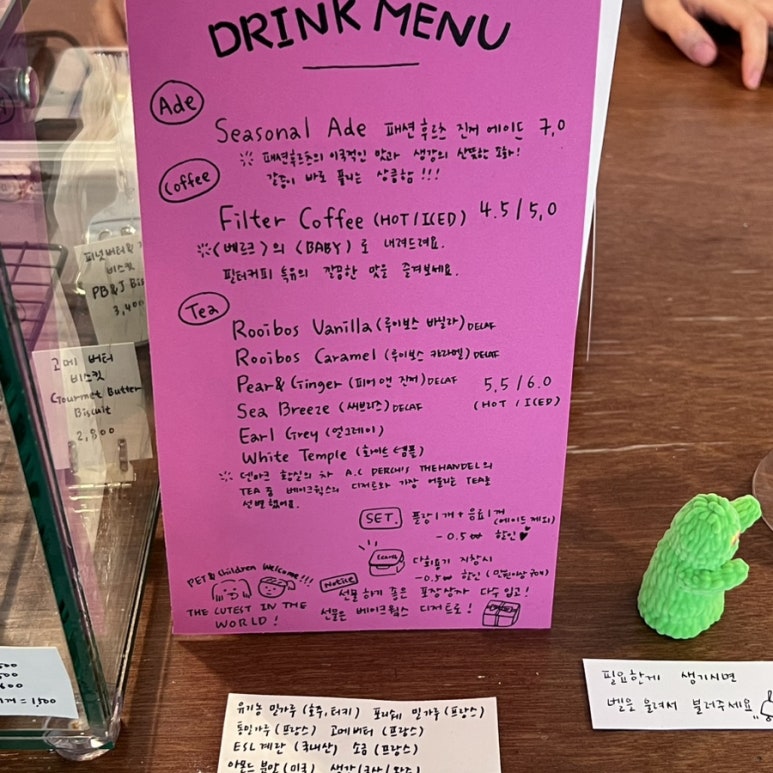 DRINK MENU
Ade
Seasonal Ade 패션후르츠 진저 에이드 7,0
패션후르츠의 이국적인 맛과 생강의 산뜻한 조화!
갈증이 바로 풀리는 상큼함!!!
Coffee
Filter Coffee (HOT/ICED) 4.5/5,0
<베르크>의 <BABY>로 내려드려요.
필터커피 특유의 깔끔한 맛을 즐겨보세요.
Tea
Rooibos Vanilla (루이보스 바닐라) DECAF
Rooibos Caramel (루이보스 카라멜) DECAF
Pear & Ginger (피어 앤 진저) DECAF 5,5/6.0
Sea Breeze (씨브리즈) DECAF (HOT / ICED)
Earl Grey (얼그레이)
White Temple (화이트 템플)
덴마크 왕실의 차 A.C PERCH'S THEHANDEL의
TEA 중 베이크웍스의 디저트와 가장 어울리는 TEA를
선별했어요.
SET. 플랑 1개 + 음료 1개
(에이드 제외)
-0.5₩ 할인
다회용기 지참시
-0.5₩ 할인
PET & Children Welcome!!!
THE CUTEST IN THE
WORLD!
Notice
선물하기 좋은 포장상자 다수 입고!
선물은 베이크웍스 디저트로!
피넛버터&
비스킷
PB&J Bis
3,400
고메 버터
비스킷
Gourmet Butter
Biscuit
2,800
= 1,500
유기농 밀가루 (호주, 터키) 포리쉐 밀가루 (프랑스)
통밀가루 (프랑스) 고메버터 (프랑스)
ESL 계란 (국내산) 소금 (프랑스)
아몬드 분말 (미국) 생강
필요한게 생기시면
벨을 울려서 불러주세요